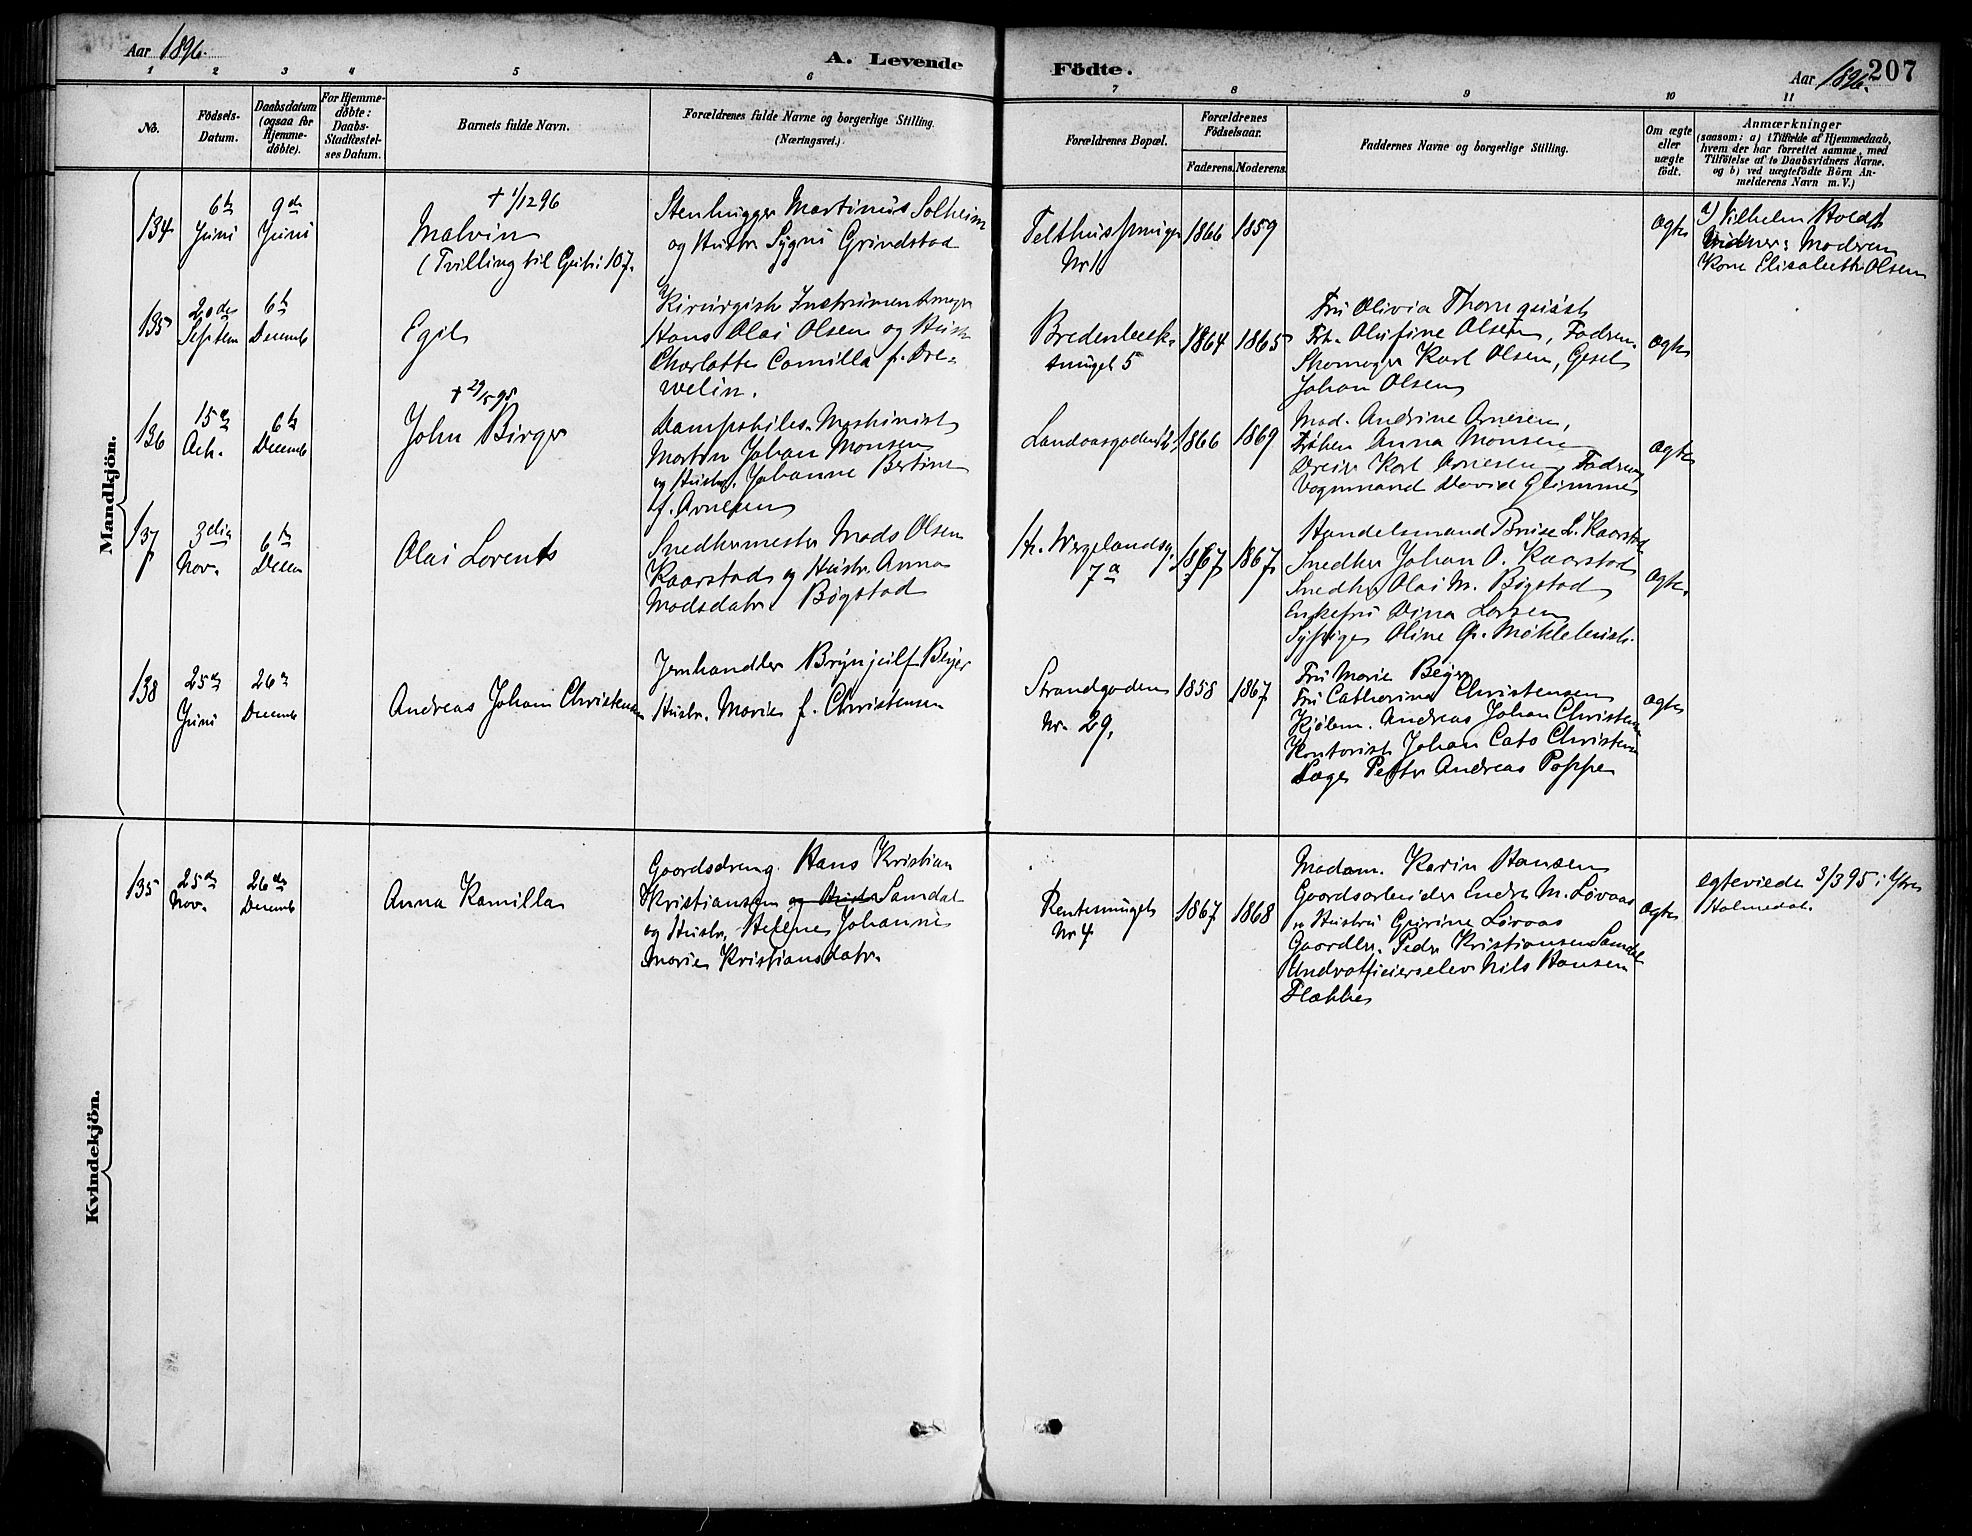 Aar 1896.
A. Levende
Födte.
Aar 1896.
207
1 2 3 4 5 6 7 8 9 10 11
No.
Födsels-
Datum.
Daabsdatum
(ogsaa for
Hjemme-
döbte).
For Hjemme-
döbte:
Daabs-
Stadfæstel-
ses Datum.
Barnets fulde Navn.
Forældrenes fulde Navne og borgerlige Stilling.
(Næringsvei.)
Forældrenes Bopæl.
Forældrenes
Födselsaar.
Faderens. Moderens.
Faddernes Navne og borgerlige Stilling.
Om ægte
eller
uægte
födt.
Anmærkninger
(saasom: a) i Tilfælde af Hjemmedaab,
hvem der har forrettet samme, med
Tilföielse af to Daabsvidners Navne.
og b) ved uægtefödte Börn An-
melderens Navn m. V.)
Mandkjön.
134
6te
Juni
9de
Juni
+ 1/12 96
Malvin
(Tvilling til Geb: 107.
Stenhugger Martinus Solheim
og Hustr. Sygni Grindstad
Telthussmuget
Nr 1.
1866
1859
ægte
a) Vilhelm Holdt
Vidner: Moderen
Kone Elisabeth Olsen
135
20de
Septem
6te
Decemb
Egil
Kirurgisk Instrumentmager
Hans Olai Olsen og Hustr.
Charlotte Camilla f. Dre-
welin.
Bredenbecks-
smuget 5
1864
1865
Fru Olivia Thornquist
Frk. Olufine Olsen, Faderen
Skomager Karl Olsen, Gesel
Johan Olsen
ægte
136
15de
6te
Decemb
+ 29/5 98
John Birger
Dampskibs-Maskinist
Martin Johan Monsen
og Hustr. Johanne Bertine
f. Arnesen
Landaasgaden
1866
1869
Mad. Andrine Arnesen,
Frøken Anna Monsen
Dreier Karl Arnesen, Faderen,
Vognmand David Glimme
ægte
137
3die
Nov.
6te
Decem
Olai Lorents
Snedkermester Mads Olsen
Kaarstad og Hustr. Anna
Madsdatr. Bøgstad
H. Wergelandsg.
7a
1867
1867
Handelsmand Brase L. Kaarstad
Snedker Johan O. Kaarstad
Snedker Olai M. Bøgstad
Enkefru Dina Larsen
Sypige Oline G. Møklebust.
ægte.
138
25de
Juni
26de
Decemb
Andreas Johan Christensen
Jernhandler Brynjulf Beyer
Hustr. Marie f. Christensen
Strandgaden
Nr. 29.
1858
1867
Fru Marie Beyer
Fru Catharina Christensen
Kjøbm. Andreas Johan Christensen
Kontorist Johan Cato Christensen
Læge Peter Andreas Poppe
ægte
Kvindekjön.
135
25de
Nov.
26de
Decemb
Anna Kamilla
Gaardsdreng. Hans Kristian
Kristiansen og Hustr Samdal
og Hustr. Helene Johanne
Marie Kristiansdatr.
Rentesmuget
Nr 4
1867
1868
Madam. Karin Hansen
Gaardsarbeider Endre M. Løvaas
og Hustru Gurine Løvaas
Gaardbr. Peder Kristiansen Samdal
Underofficierselev Nils Hansen
Flække
ægte
egteviede 3/3 95 i Ytre
Holmedal.